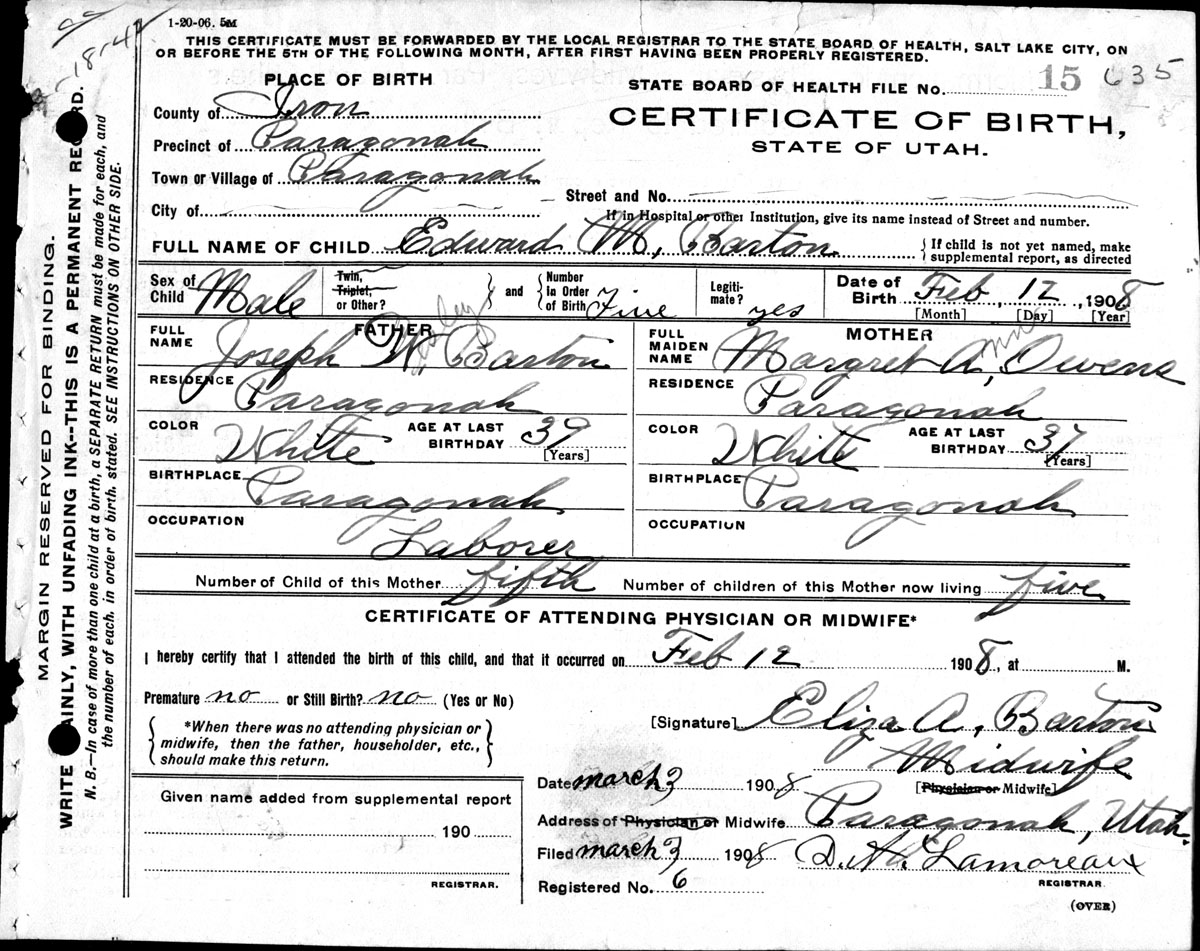 1-20-06. 5M
THIS CERTIFICATE MUST BE FORWARDED BY THE LOCAL REGISTRAR TO THE STATE BOARD OF HEALTH, SALT LAKE CITY, ON
OR BEFORE THE 5TH OF THE FOLLOWING MONTH, AFTER FIRST HAVING BEEN PROPERLY REGISTERED.
PLACE OF BIRTH
STATE BOARD OF HEALTH FILE No. 15 635
County of Iron
CERTIFICATE OF BIRTH,
STATE OF UTAH.
Precinct of Paragonah
Town or Village of Paragonah
Street and No.
City of
If in Hospital or other Institution, give its name instead of Street and number.
FULL NAME OF CHILD Edward M, Barton
If child is not yet named, make
supplemental report, as directed
Sex of Child Male
Twin, Triplet, or Other? and Number In Order of Birth Five
Legitimate? yes
Date of Birth Feb, 12, 1908
[Month] [Day] [Year]
FATHER
FULL NAME Joseph W Barton
RESIDENCE Paragonah
COLOR White AGE AT LAST BIRTHDAY 39 [Years]
BIRTHPLACE Paragonah
OCCUPATION Laborer
MOTHER
FULL MAIDEN NAME Margret A, Owens
RESIDENCE Paragonah
COLOR White AGE AT LAST BIRTHDAY 37 [Years]
BIRTHPLACE Paragonah
OCCUPATION
Number of Child of this Mother fifth Number of children of this Mother now living five
CERTIFICATE OF ATTENDING PHYSICIAN OR MIDWIFE*
I hereby certify that I attended the birth of this child, and that it occurred on Feb 12 1908, at M.
Premature no or Still Birth? no (Yes or No)
*When there was no attending physician or
midwife, then the father, householder, etc.,
should make this return.
[Signature] Eliza A, Barton
Midwife
Date march 3 1908 [Physician or Midwife]
Address of Physician or Midwife Paragonah, Utah.
Filed march 3 1908 D. A. Lamoreaux
REGISTRAR
Registered No. 6
(OVER)
Given name added from supplemental report
190
REGISTRAR.
MARGIN RESERVED FOR BINDING.
WRITE AINLY, WITH UNFADING INK--THIS IS A PERMANENT RE RD.
N. B.—In case of more than one child at a birth, a SEPARATE RETURN must be made for each, and
the number of each, in order of birth, stated. SEE INSTRUCTIONS ON OTHER SIDE.